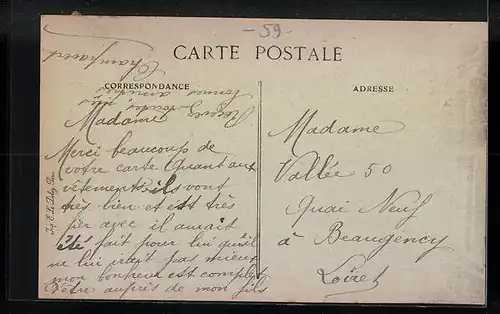 - 59
CARTE POSTALE
CORRESPONDANCE
ADRESSE
Madame
Merci beaucoup de
votre carte. Quant aux
vêtements ils vont
très bien et est très
fier avec il aurait
été fait pour lui qu'il
ne lui irait pas mieux
mon bonheur est complet
d'être auprès de mon fils
Recevez
toutes nos
amitiés
Madame
Vallée 50
Quai Neuf
à Beaugency
Loiret